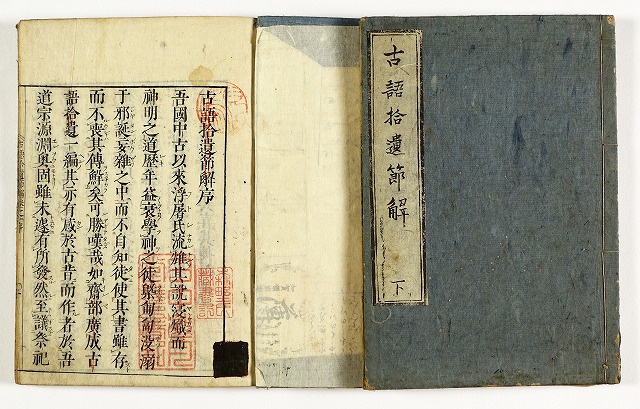 古語拾遺節解
下
古語拾遺節解序
吾國中古以來浮屠氏流其說熾而
神明之道歷年益衰學神之徒匍匐沒溺
于邪誕妄雜之中而不自知徒使其書雖存
而不喪其傳鮮矣可勝嘆哉如齋部廣成古
語拾遺一編其亦有感於古昔而作者於吾
道宗源淵奧固雖未遽有所發然至議祭祀